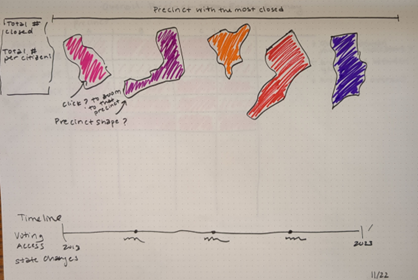 Precinct with the most closed
Total #
closed
Total #
per citizen
Click? to zoom
to that
precinct
Precinct shape?
Timeline
Voting
Access
State changes
2013
2023
11/22